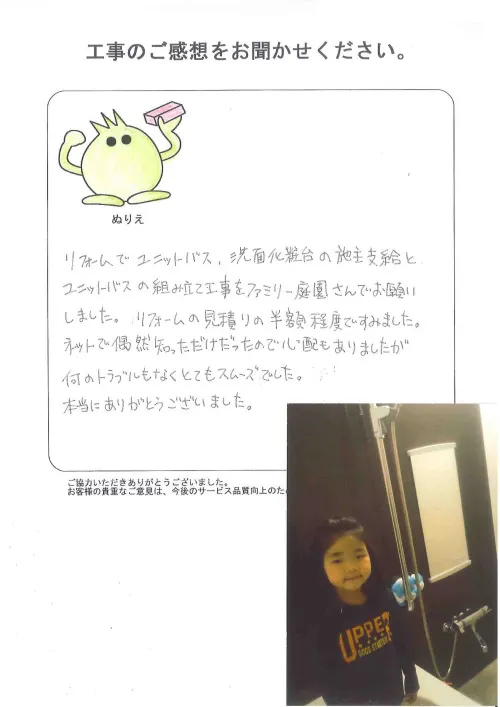 工事のご感想をお聞かせください。
ぬりえ
リフォームで ユニットバス、洗面化粧台の施主支給と
ユニットバスの組み立て工事をファミリー庭園さんでお願い
しました。リフォームの見積りの半額程度ですみました。
ネットで偶然知っただけだったので心配もありましたが
何のトラブルもなくとてもスムーズでした。
本当にありがとうございました。
ご協力いただきありがとうございました。
お客様の貴重なご意見は、今後のサービス品質向上のため
UPPER